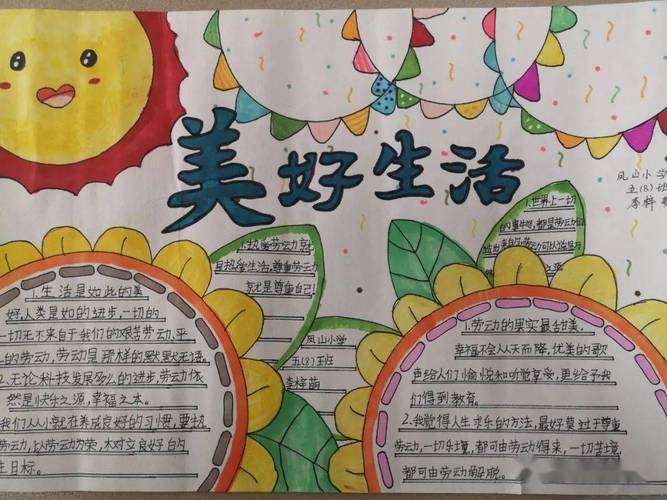 美好生活
凤山小学
五(8)班
李梓
1.世界上一切
1.热爱劳动就
是热爱生活,尊重劳动
就是尊重自己!
凤山小学
五(8)班
李梓萌
1.生活是如此的美
好人类是如的进步,一切的
一切无不来自于我们的艰苦劳动,平
的劳动,劳动是那样的默默无语。
2.无论科技发展多么的进步,劳动依
然是快乐之源,幸福之本。
我们从小就在养成良好的习惯,要热
劳动,以劳动为荣,木对立良好的
生目标。
1.劳动的果实最甜美,
幸福不会从天而降,优美的歌
声给人们愉悦和听觉享受,更给予我
们得到教育。
2.我觉得人生求乐的方法,最好莫过于尊重
劳动,一切乐境,都可由劳动得来,一切苦境
都可由劳动解脱。